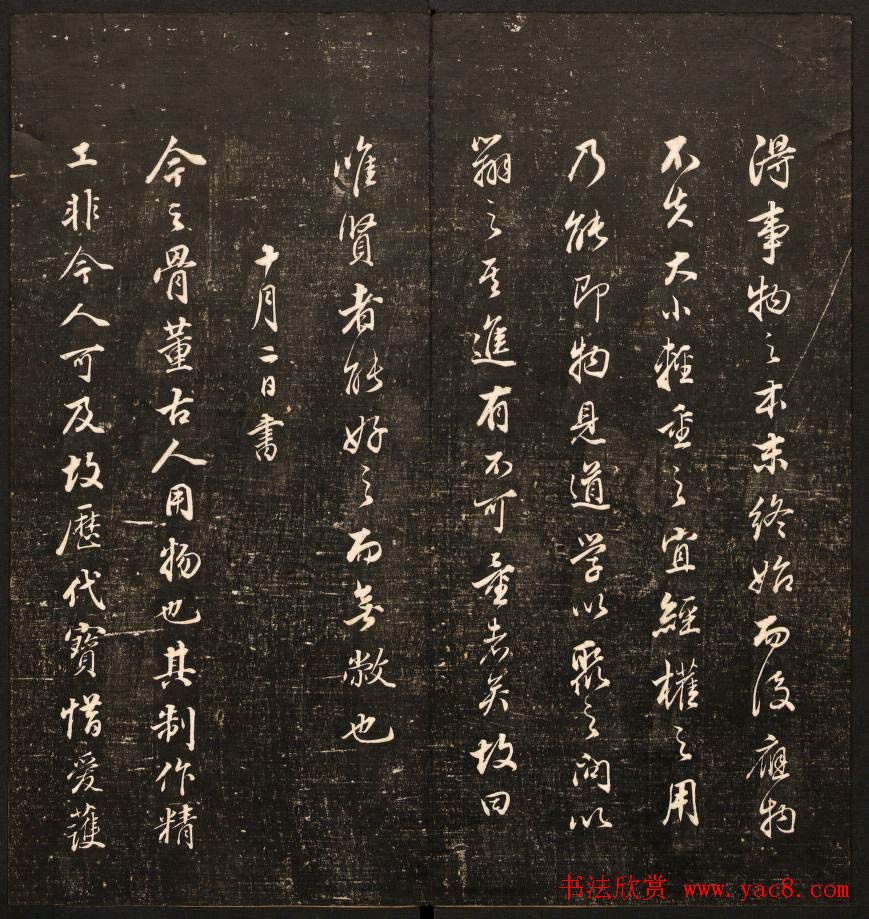 得事物之本末終始而後應物
不失大小輕重之宜經權之用
乃能即物見道學以聚之問以
辨之其進有不可量者矣故曰
唯賢者能好之而無敝也
十月二日書
今之骨董古人用物也其制作精
工非今人可及故歷代寶惜愛護
书法欣赏 www.yac8.com